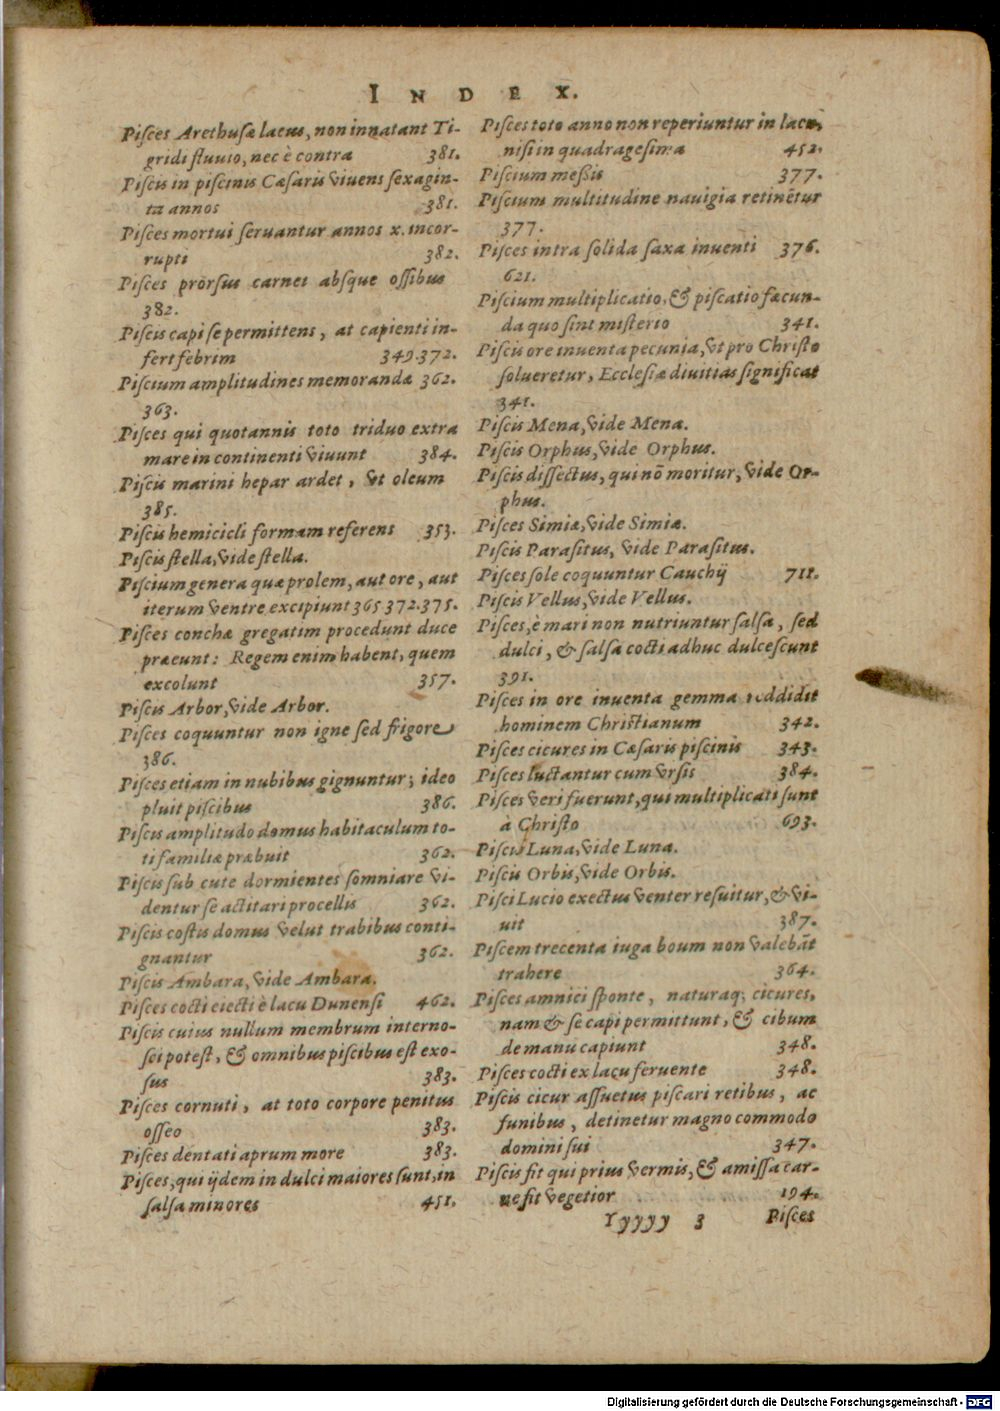 INDEX.
Piſces Arethuſæ lacus, non innatant Ti-
gridi fluuio, nec è contra 381.
Piſcis in piſcinis Cæſaris viuens ſexagin-
ta annos 381.
Piſces mortui ſeruantur annos x. incor-
rupti 382.
Piſces prorſus carnei abſque oſſibus
382.
Piſcis capi ſe permittens, at capienti in-
fert febrim 349.372.
Piſcium amplitudines memorandæ 362.
363.
Piſces qui quotannis toto triduo extra
mare in continenti viuunt 384.
Piſcis marini hepar ardet, vt oleum
385.
Piſcis hemicicli formam referens 353.
Piſcis ſtella, vide ſtella.
Piſcium genera quæ prolem, aut ore, aut
iterum ventre excipiunt 365 372.375.
Piſces conchæ gregatim procedunt duce
præeunt: Regem enim habent, quem
excolunt 357.
Piſcis Arbor, vide Arbor.
Piſces coquuntur non igne ſed frigore
386.
Piſces etiam in nubibus gignuntur; ideo
pluit piſcibus 386.
Piſcis amplitudo domus habitaculum to-
ti familiæ præbuit 362.
Piſcis ſub cute dormientes ſomniare vi-
dentur ſe actitari procellis 362.
Piſcis coſtis domus velut trabibus conti-
gnantur 362.
Piſcis Ambara, vide Ambara.
Piſces cocti eiecti è lacu Dunenſi 462.
Piſcis cuius nullum membrum interno-
ſci poteſt, & omnibus piſcibus eſt exo-
ſus 383.
Piſces cornuti, at toto corpore penitus
oſſeo 383.
Piſces dentati aprum more 383.
Piſces, qui ijdem in dulci maiores ſunt, in
ſalſa minores 451.
Piſces toto anno non reperiuntur in lacu,
niſi in quadrageſima 452.
Piſcium meſsis 377.
Piſcium multitudine nauigia retinētur
377.
Piſces intra ſolida ſaxa inuenti 376.
621.
Piſcium multiplicatio, & piſcatio fœcun-
da quo ſint miſterio 341.
Piſcis ore inuenta pecunia, vt pro Chriſto
ſolueretur, Eccleſiæ diuitias ſignificat
341.
Piſcis Mena, vide Mena.
Piſcis Orphus, vide Orphus.
Piſcis diſſectus, qui nō moritur, vide Or-
phus.
Piſces Simiæ, vide Simiæ.
Piſcis Paraſitus, vide Paraſitus.
Piſces ſole coquuntur Cauchij 711.
Piſcis Vellus, vide Vellus.
Piſces, è mari non nutriuntur ſalſa, ſed
dulci, & ſalſa cocti adhuc dulceſcunt
391.
Piſces in ore inuenta gemma reddidit
hominem Chriſtianum 342.
Piſces cicures in Cæſaris piſcinis 343.
Piſces luctantur cum vrſis 384.
Piſces veri fuerunt, qui multiplicati ſunt
à Chriſto 693.
Piſcis Luna, vide Luna.
Piſcis Orbis, vide Orbis.
Piſci Lucio exectus venter reſuitur, & vi-
uit 387.
Piſcem trecenta iuga boum non valebāt
trahere 364.
Piſces amnici ſponte, naturaq; cicures,
nam & ſe capi permittunt, & cibum
de manu capiunt 348.
Piſces cocti ex lacu feruente 348.
Piſcis cicur aſſuetus piſcari retibus, ac
funibus, detinetur magno commodo
domini ſui 347.
Piſcis fit qui prius vermis, & amiſſa car-
ne fit vegetior 194.
Yyyyy 3 Piſces
Digitalisierung gefördert durch die Deutsche Forschungsgemeinschaft - DFG